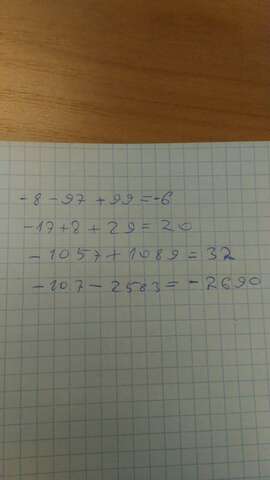 -8-97+99=-6
-17+8+29=20
-1057+1089=32
-107-2583=-2690